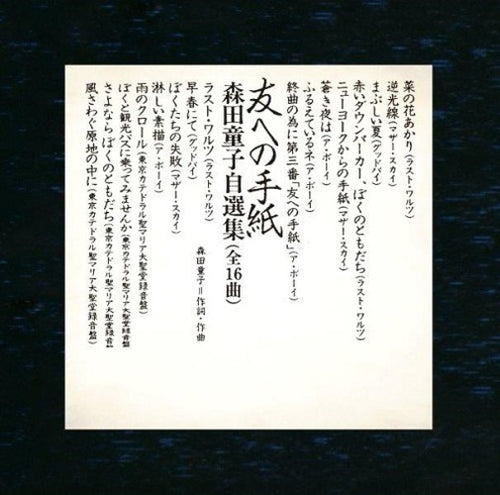 菜の花あかり(ラスト・ワルツ)
逆光線(マザー・スカイ)
まぶしい夏(グッドバイ)
赤いダウンパーカー、ぼくのともだち(ラスト・ワルツ)
ニューヨークからの手紙(マザー・スカイ)
蒼き夜は(ア・ボーイ)
ふるえているネ(ア・ボーイ)
終曲の為に第三番「友への手紙」(ア・ボーイ)
友への手紙
森田童子自選集(全16曲)
森田童子＝作詞・作曲
ラスト・ワルツ(ラスト・ワルツ)
早春にて(グッドバイ)
ぼくたちの失敗(マザー・スカイ)
淋しい素描(ア・ボーイ)
雨のクロール(東京カテドラル聖マリア大聖堂録音盤)
ぼくと観光バスに乗ってみませんか(東京カテドラル聖マリア大聖堂録音盤)
さよなら ぼくの ともだち(東京カテドラル聖マリア大聖堂録音盤)
風さわぐ原地の中に(東京カテドラル聖マリア大聖堂録音盤)